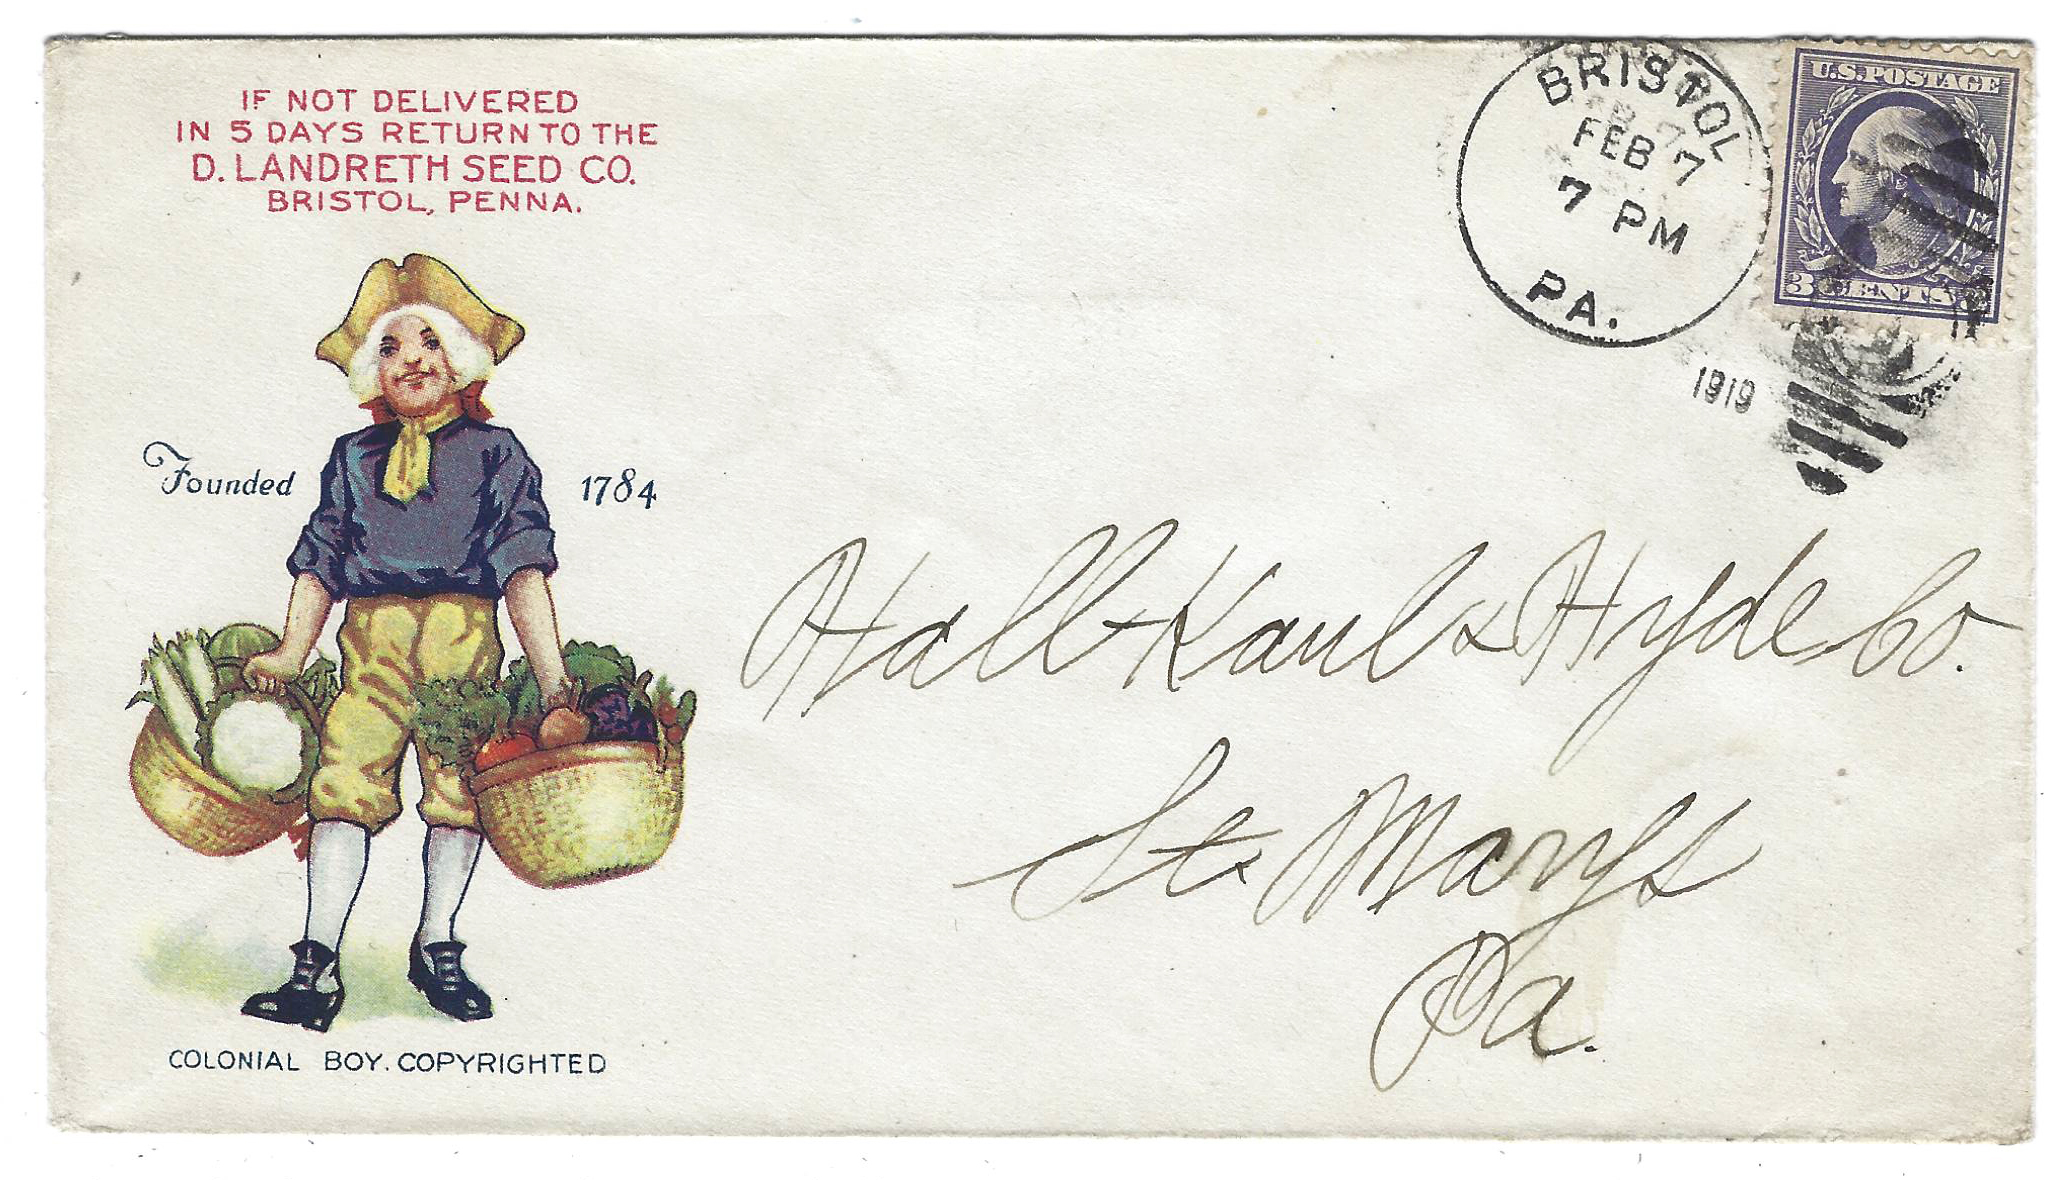 IF NOT DELIVERED
IN 5 DAYS RETURN TO THE
D. LANDRETH SEED CO.
BRISTOL, PENNA.
Founded 1784
COLONIAL BOY. COPYRIGHTED
BRISTOL
FEB 7
7 PM
PA.
1919
U.S. POSTAGE
3 CENTS
Hall Kaul & Hyde Co.
St. Marys
Pa.